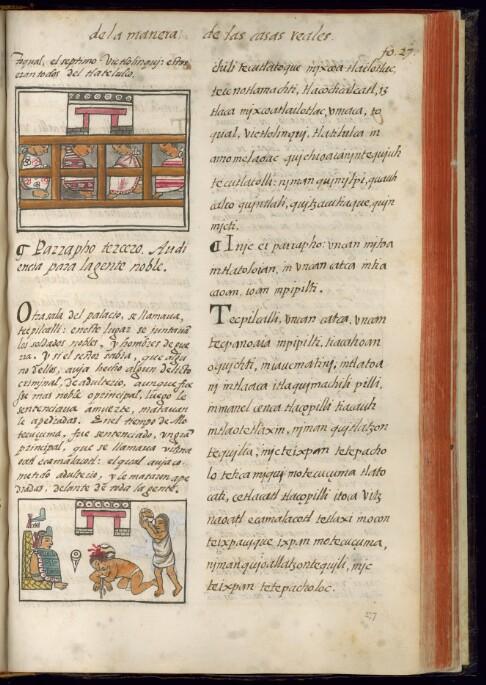 de la manera, de las casas reales.
fo. 27
naqual, el septimo. Victlolinqui: estos
eran todos del tlatelulco.
¶ Parrapho tercero. Audi
encia para la gente noble.
Otra sala del palacio, se llamaua,
tecpilcalli: en este lugar se juntauan
los soldados nobles, y hombres de gue
rra. Y si el señor sabia, que algu
no dellos, auia hecho algun delicto
criminal, de adulterio, aunque fue
se mas noble o principal, luego le
sentenciaua a muerte, matauan
le apedradas. En el tiempo de Mo
tecuçuma, fue sentenciado, un gran
principal, que se llamaua vitzna
oatl ecamalacotl: el qual auia co
metido adulterio, y le mataron ape
dradas, delante de toda la gente.
chili tecutlato que mjxcoa tlailotlac,
teicnotlamachti, tlacochcalcatl,
tlaca mjxcoatlailotlac, vmaca, to
qual, victlolinqui, tlatilulca in
amo melaoac quichioaia injntequjuh
tecutlatolli: njman quinjlpi, quauh
calco quintlali, quitzauctiaque, quin
micti.
¶ Injc ei parrapho: vncan mjtoa
in tlatoloian, in vncan catca in tla
çaoan, ioan in pipilti.
Tecpilcalli, vncan catca, vncan
tecpanoaia in pipilti, tiacahoan
oquichti, in iaumatinj, in tlatoa
nj intlacaca itlaquimachili pilli,
in manel cenca tlaçopilli tiacauh
in tlaotetlaxin, njman quitlatzon
tequilia, injc teixpan tetepacho
lo tetica mjquj motecuçuma tlato
catj, ce tlacatl tlaçopilli itoca vitz
naoatl ecamalacotl tetlaxi mocon
teixpauique ixpan motecuçuma,
njman quioallatzontequili, injc
teixpan tetepacholoc.
277